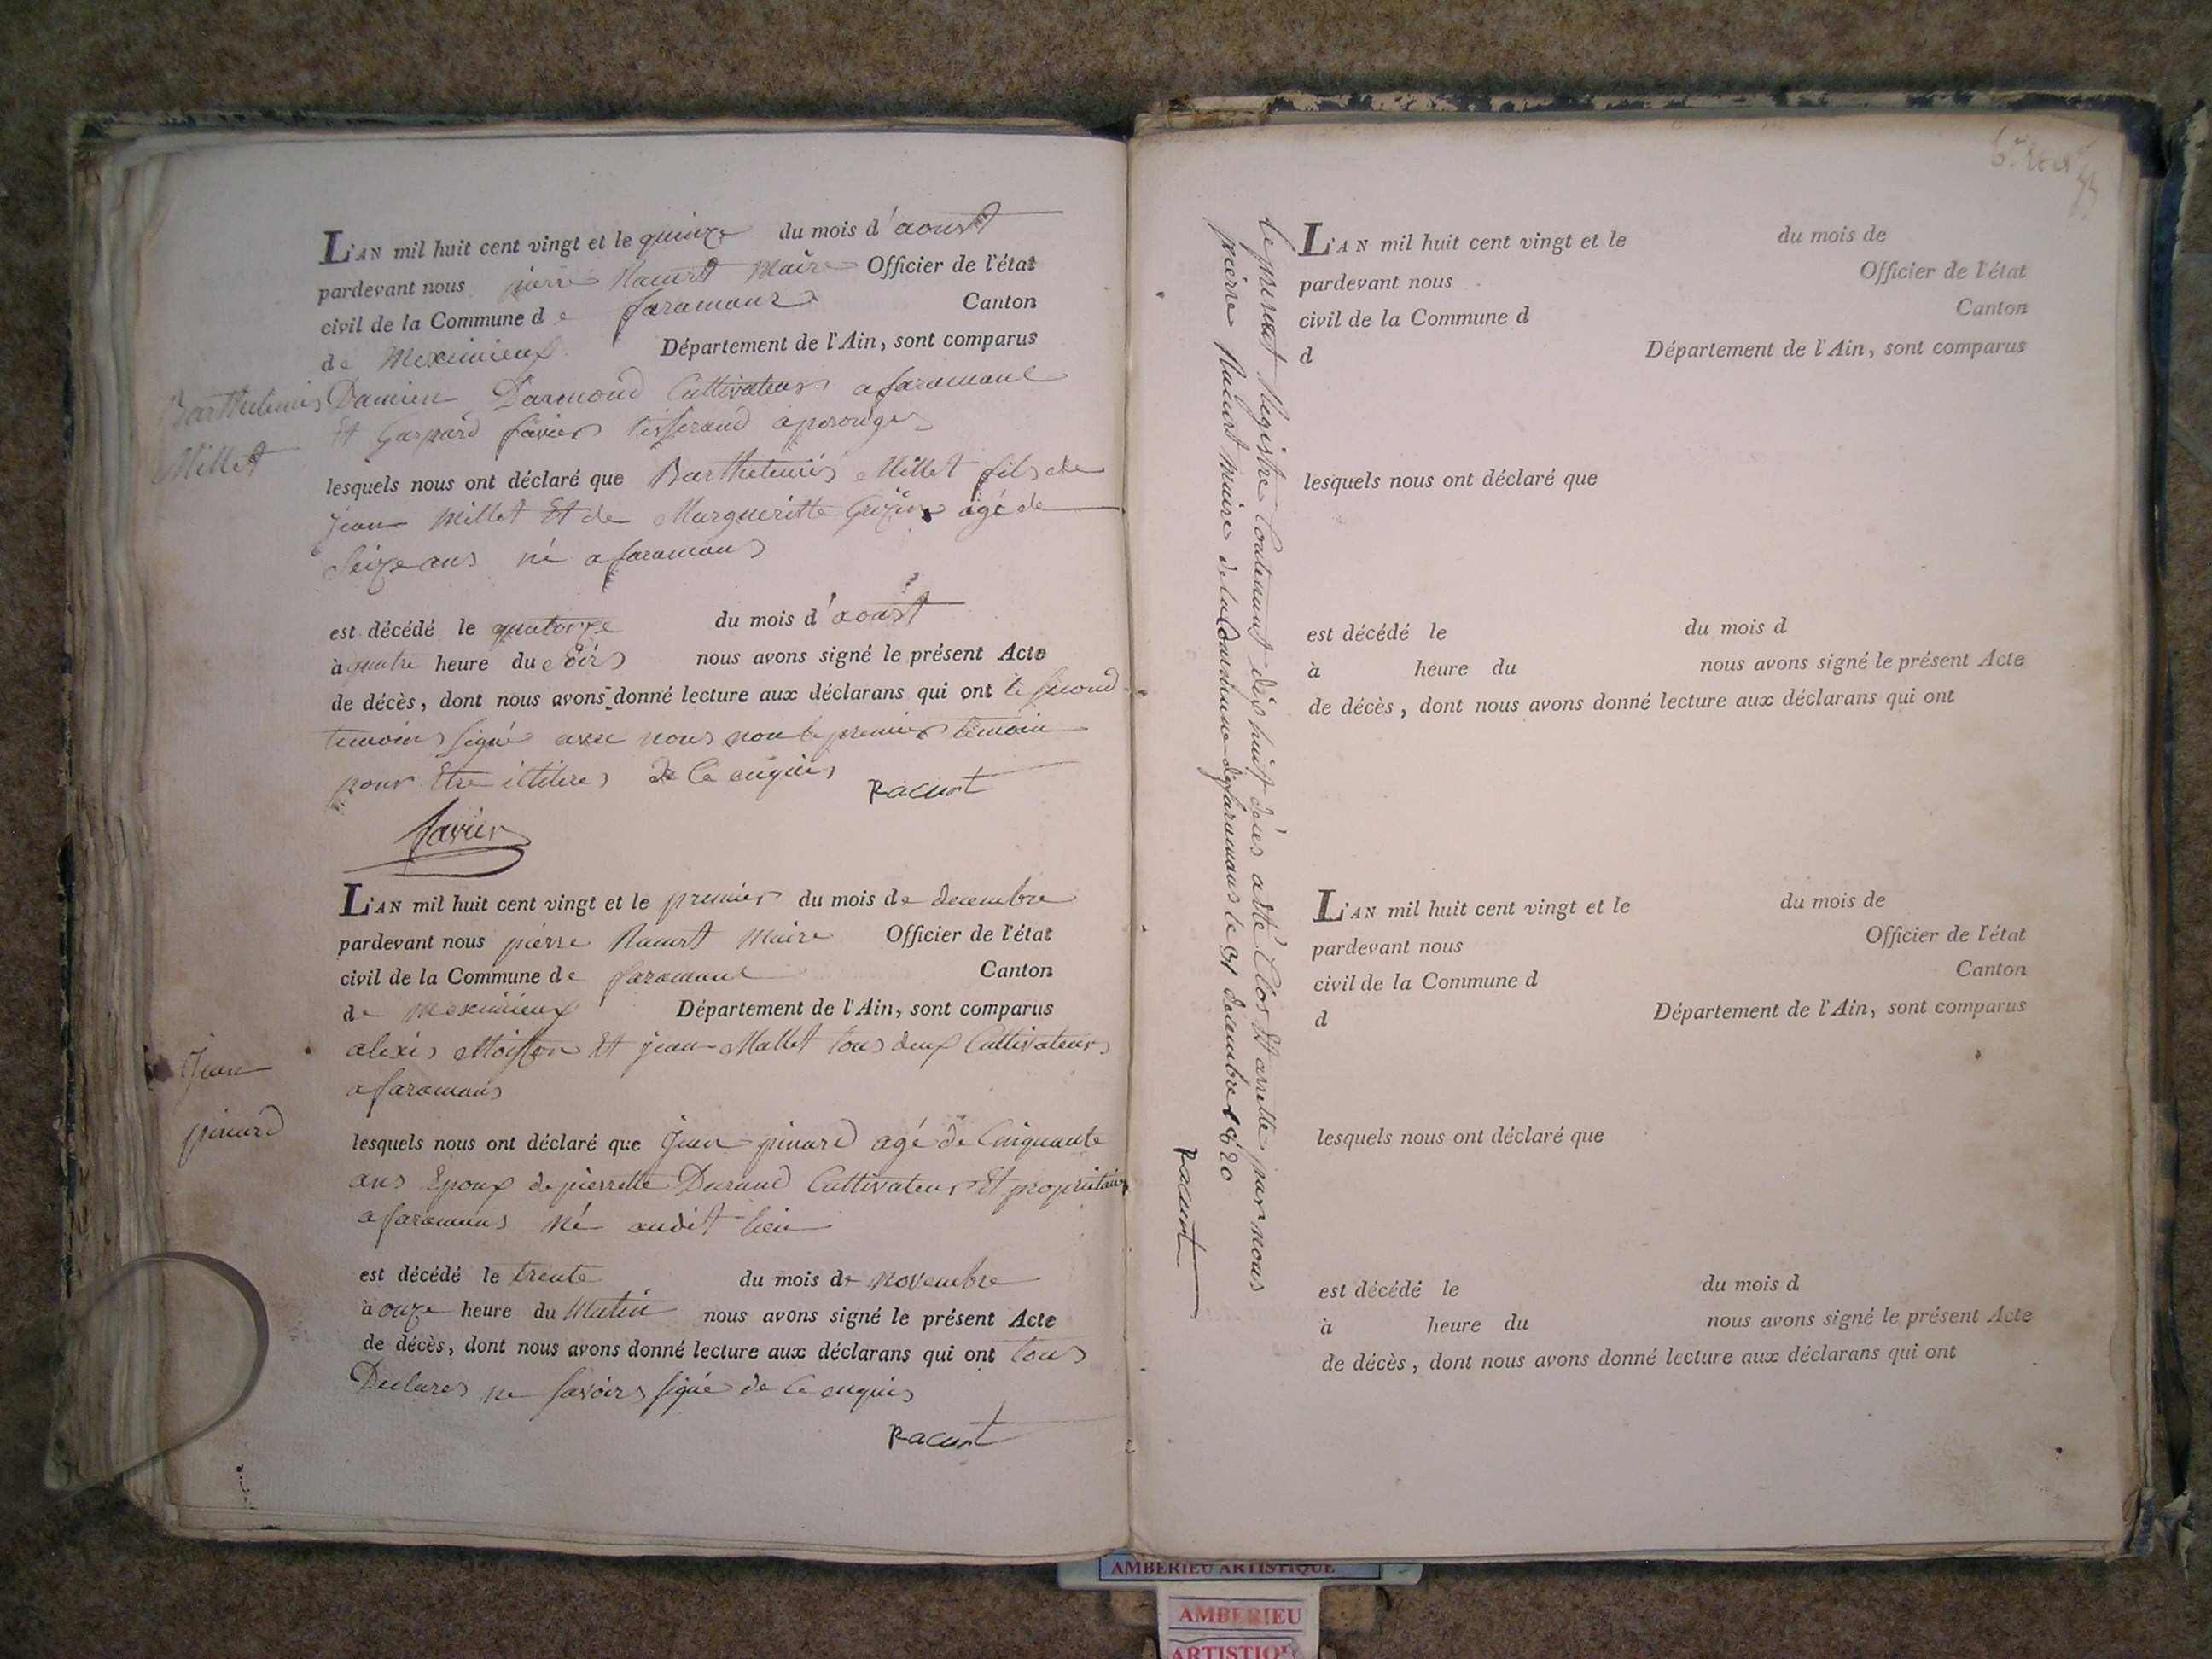 L'AN mil huit cent vingt et le quinze du mois d'aoust
pardevant nous pierre Racurt Maire Officier de l'état
civil de la Commune de faramans Canton
de Meximieux Département de l'Ain, sont comparus
Damien Darmond Cultivateur a faramans
Et Gaspard favier tisserand a perouges
Barthelemis
Millet
lesquels nous ont déclaré que Barthelemis Millet fils de
jean Millet Et de Margueritte agé de
Seize ans né a faramans
est décédé le quatorze du mois d'aoust
à quatre heure du soirs nous avons signé le présent Acte
de décès, dont nous avons donné lecture aux déclarans qui ont le second
temoins signé avec nous non le premier temoin
pour Etre illiteres de Ce enquis
Racurt
favier
L'AN mil huit cent vingt et le premier du mois de decembre
pardevant nous pierre Racurt Maire Officier de l'état
civil de la Commune de faramans Canton
de Meximieux Département de l'Ain, sont comparus
alexis Moisson Et jean Mallet tous deux Cultivateurs
a faramans
Jean
pinard
lesquels nous ont déclaré que Jean pinard agé de Cinquante
ans Epoux de pierrette Durand Cultivateur Et propriétaire
a faramans né audit lieu
est décédé le trente du mois de novembre
à onze heure du Matin nous avons signé le présent Acte
de décès, dont nous avons donné lecture aux déclarans qui ont tous
Declares ne savoirs signé de Ce enquis
Racurt
le present Registre Contenant dix huit décès arté Clos Et arretté par nous
pierre Racurt maire de la Commune de faramans le 31 decembre 1820
Racurt
L'AN mil huit cent vingt et le du mois de
pardevant nous Officier de l'état
civil de la Commune d Canton
d Département de l'Ain, sont comparus
lesquels nous ont déclaré que
est décédé le du mois d
à heure du nous avons signé le présent Acte
de décès, dont nous avons donné lecture aux déclarans qui ont
L'AN mil huit cent vingt et le du mois de
pardevant nous Officier de l'état
civil de la Commune d Canton
d Département de l'Ain, sont comparus
lesquels nous ont déclaré que
est décédé le du mois d
à heure du nous avons signé le présent Acte
de décès, dont nous avons donné lecture aux déclarans qui ont
AMBERIEU ARTISTIQUE
AMBERIEU
ARTISTIQUE